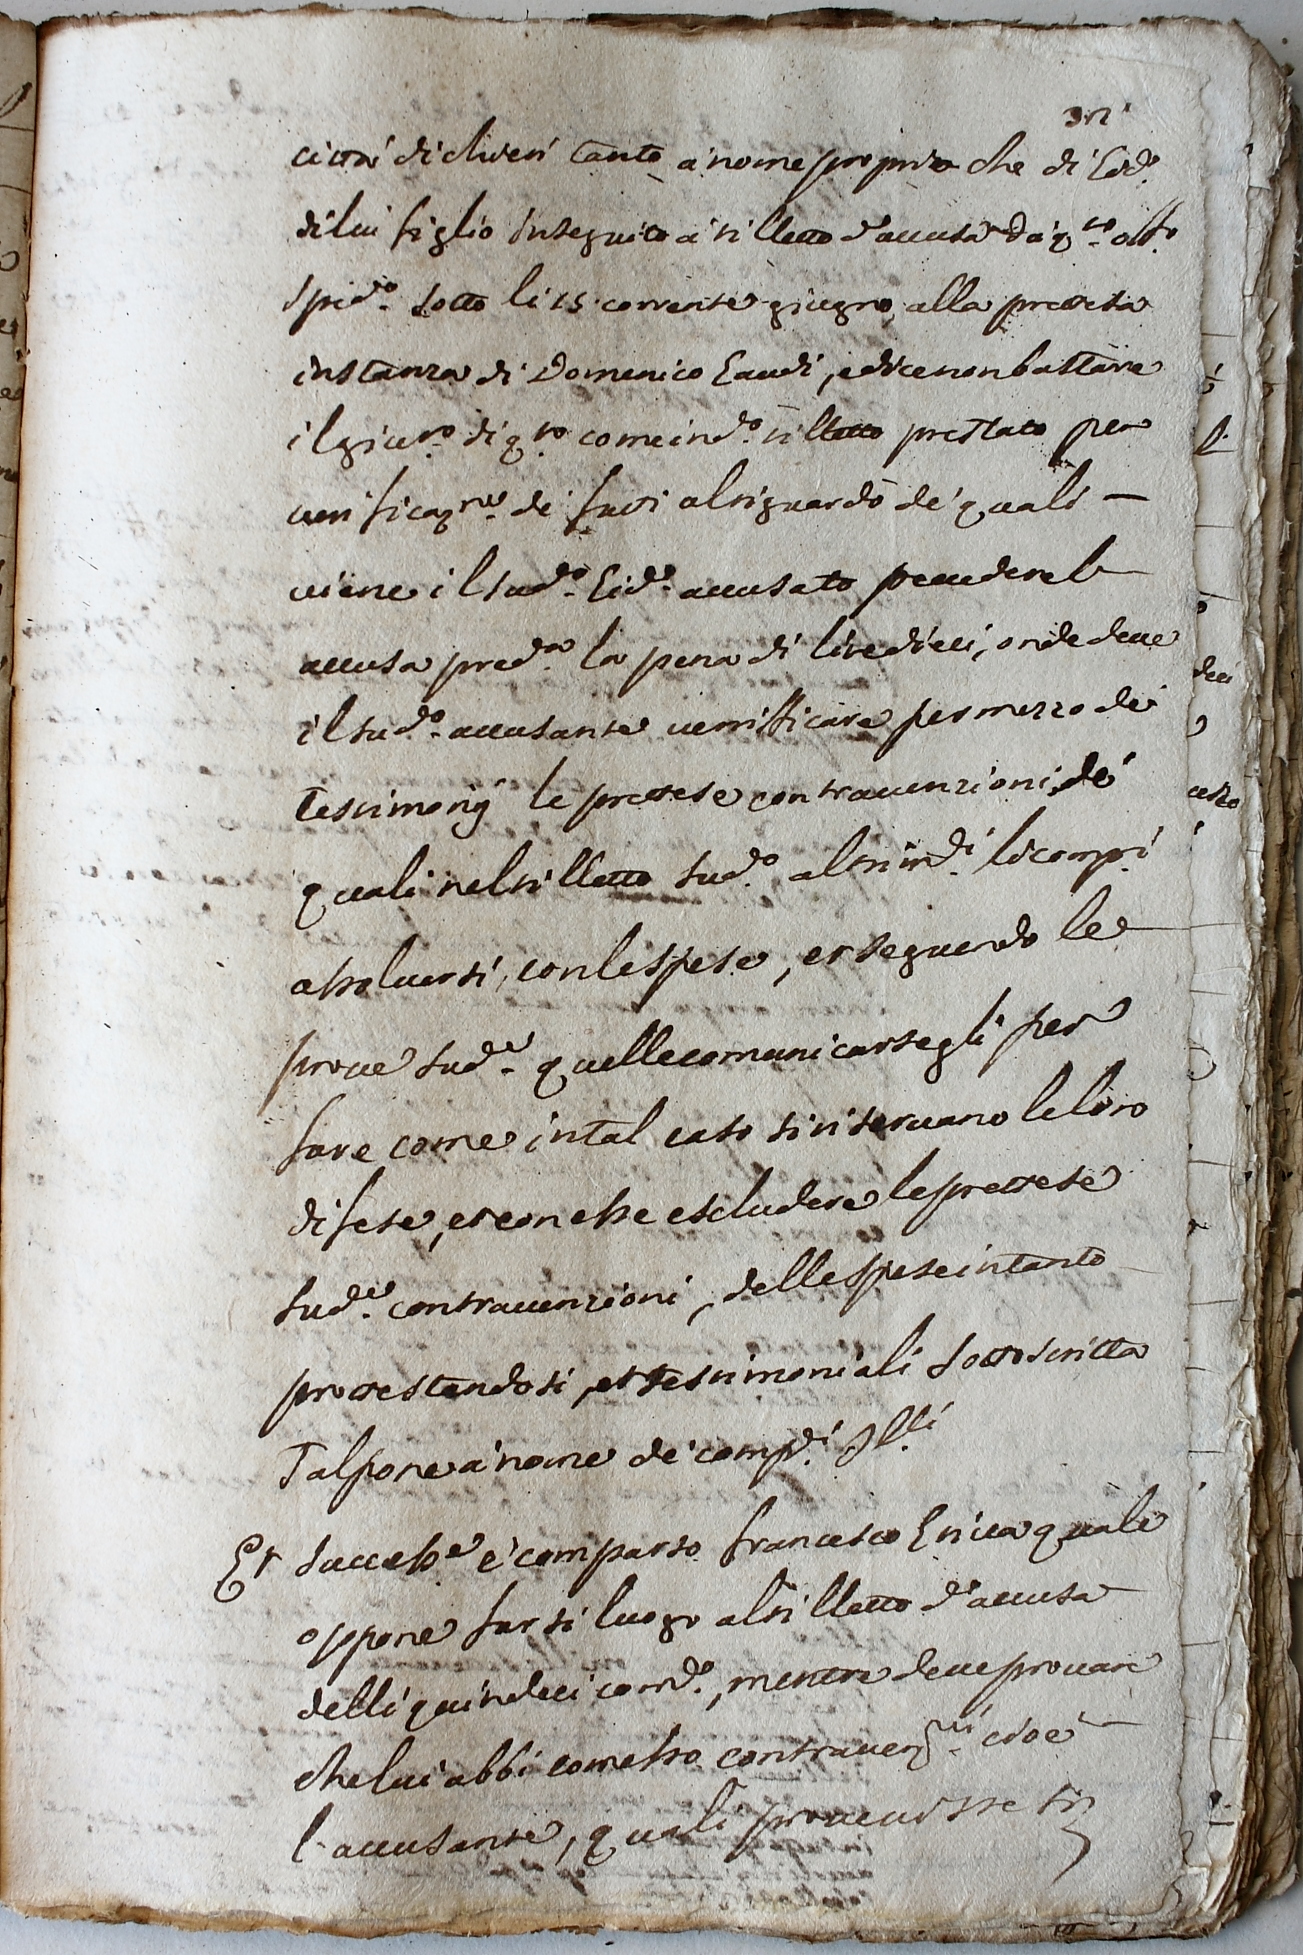 città di chieri tanto a nome proprio che di Eid.o
di lui figlio inseguito à billetto d'accusa da q.to off.o
spid.o sotto li 15 corrente giugno, alla prettesa
instanza di Domenico Gaudi, e dice non bastare
il giur.to di q.to come in d.o billetto prestato per
verificaz.ne de fatti al riguardo de' quali —
viene il sud.o Eid.o accusato
accusa pred.a la pena di lire dieci, onde deve
il sud.o accusante verifficare per mezzo de
testimonij le prettese contravenzioni, de'
quali nel billetto sud.o altrim.ti li compi.
assolversi, con le spese, et seguendo le
prove sud.e quelle comunicarsegli per
fare come in tal caso si riservano le loro
difese, et con esse escludere le prettese
sud.e contravenzioni, delle spese intanto
prottestandosi, et testimoniali sottoscritta
Talpone à nome de' comp.ti
Et success.e è comparso francesco quale
oppone farsi luogo al billetto d'accusa
delli quindeci corr.e, mentre deve provare
che lui abbi comesso contraven.ni cioè
l'accusante, quali